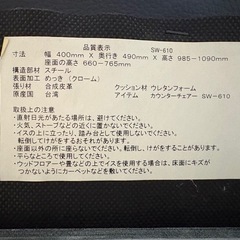 品質表示 SW-610
寸法 幅 400mm X 奥行き 490mm X 高さ 985-1090mm
座面の高さ 660-765mm
構造部材 スチール
表面加工 めっき（クローム）
張り材 合成皮革 クッション材 ウレタンフォーム
原産国 台湾 アイテム カウンターチェアー SW-610
取扱上の注意
・直射日光があたる場所は、避けてください。
・火気、ストーブなどの近くに置かないでください。
・イスの上に立ったり、踏み台として使用しないでください。
転倒してけがをするおそれがあります。
・座面以外の所に座らないでください。転倒してけがをすることがあります。
・平らなところで使用してください。
・ウッドフロアーや畳などの上でイスを使用する場合は、床面にキズが
つかないようにカーペットなどを敷いてください。